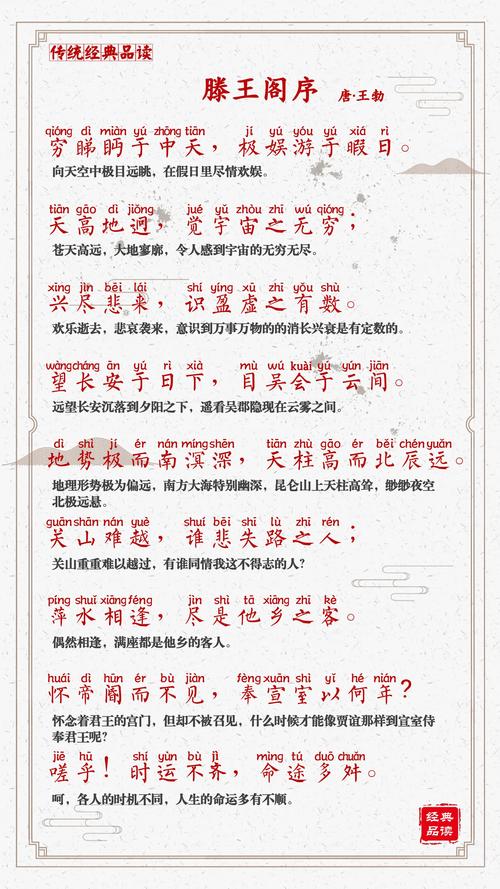 传统经典品读
滕王阁序 唐·王勃
qióng dì miàn yú zhōng tiān jí yú yóu yú xiá rì
穷睇眄于中天，极娱游于暇日。
向天空中极目远眺，在假日里尽情欢娱。
tiān gāo dì jiǒng jué yǔ zhòu zhī wú qióng
天高地迥，觉宇宙之无穷；
苍天高远，大地寥廓，令人感到宇宙的无穷无尽。
xìng jìn bēi lái shí yíng xū zhī yǒu shù
兴尽悲来，识盈虚之有数。
欢乐逝去，悲哀袭来，意识到万事万物的的消长兴衰是有定数的。
wàng cháng ān yú rì xià mù wú kuài yú yún jiān
望长安于日下，目吴会于云间。
远望长安沉落到夕阳之下，遥看吴郡隐现在云雾之间。
dì shì jí ér nán míng shēn tiān zhù gāo ér běi chén yuǎn
地势极而南溟深，天柱高而北辰远。
地理形势极为偏远，南方大海特别幽深，昆仑山上天柱高耸，缈缈夜空
北极远悬。
guān shān nán yuè shuí bēi shī lù zhī rén
关山难越，谁悲失路之人；
关山重重难以越过，有谁同情我这不得志的人？
píng shuǐ xiāng féng jìn shì tā xiāng zhī kè
萍水相逢，尽是他乡之客。
偶然相逢，满座都是他乡的客人。
huái dì hūn ér bù jiàn fèng xuān shì yǐ hé nián
怀帝阍而不见，奉宣室以何年？
怀念着君王的宫门，但却不被召见，什么时候才能像贾谊那样到宣室侍
奉君王呢？
jiē hū shí yùn bù jì mìng tú duō chuǎn
嗟乎！时运不齐，命途多舛。
呵，各人的时机不同，人生的命运多有不顺。
经典
品读